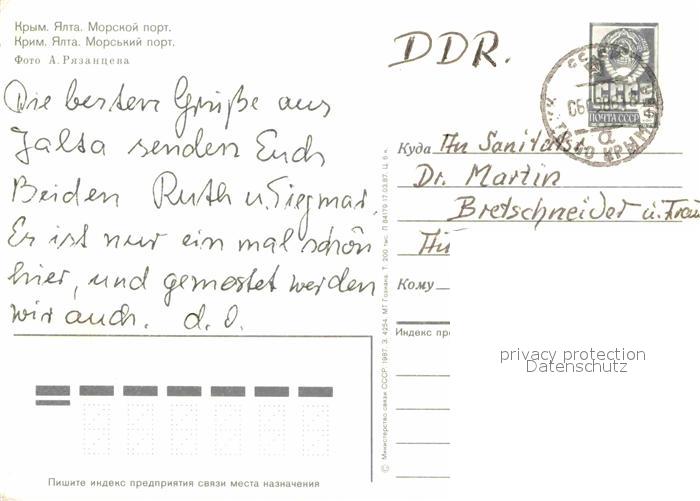 Крым. Ялта. Морской порт.
Крим. Ялта. Морський порт.
Фото А. Рязанцева
Die besten Grüße aus
Jalta senden Euch
Beiden Ruth u. Siegmar.
Es ist nur ein mal schön
hier, und gemostet werden
wir auch. d. O.
DDR.
СССР
ПОЧТА СССР
Куда An Sanitätsr.
Dr. Martin
Bretschneider u. Frau
Кому
Индекс пре
privacy protection
Datenschutz
© Министерство связи СССР. 1987. З. 4254. МТ Гознака. Т. 200 тыс. П 84179 17.03.87. Ц. 6 к.
Пишите индекс предприятия связи места назначения